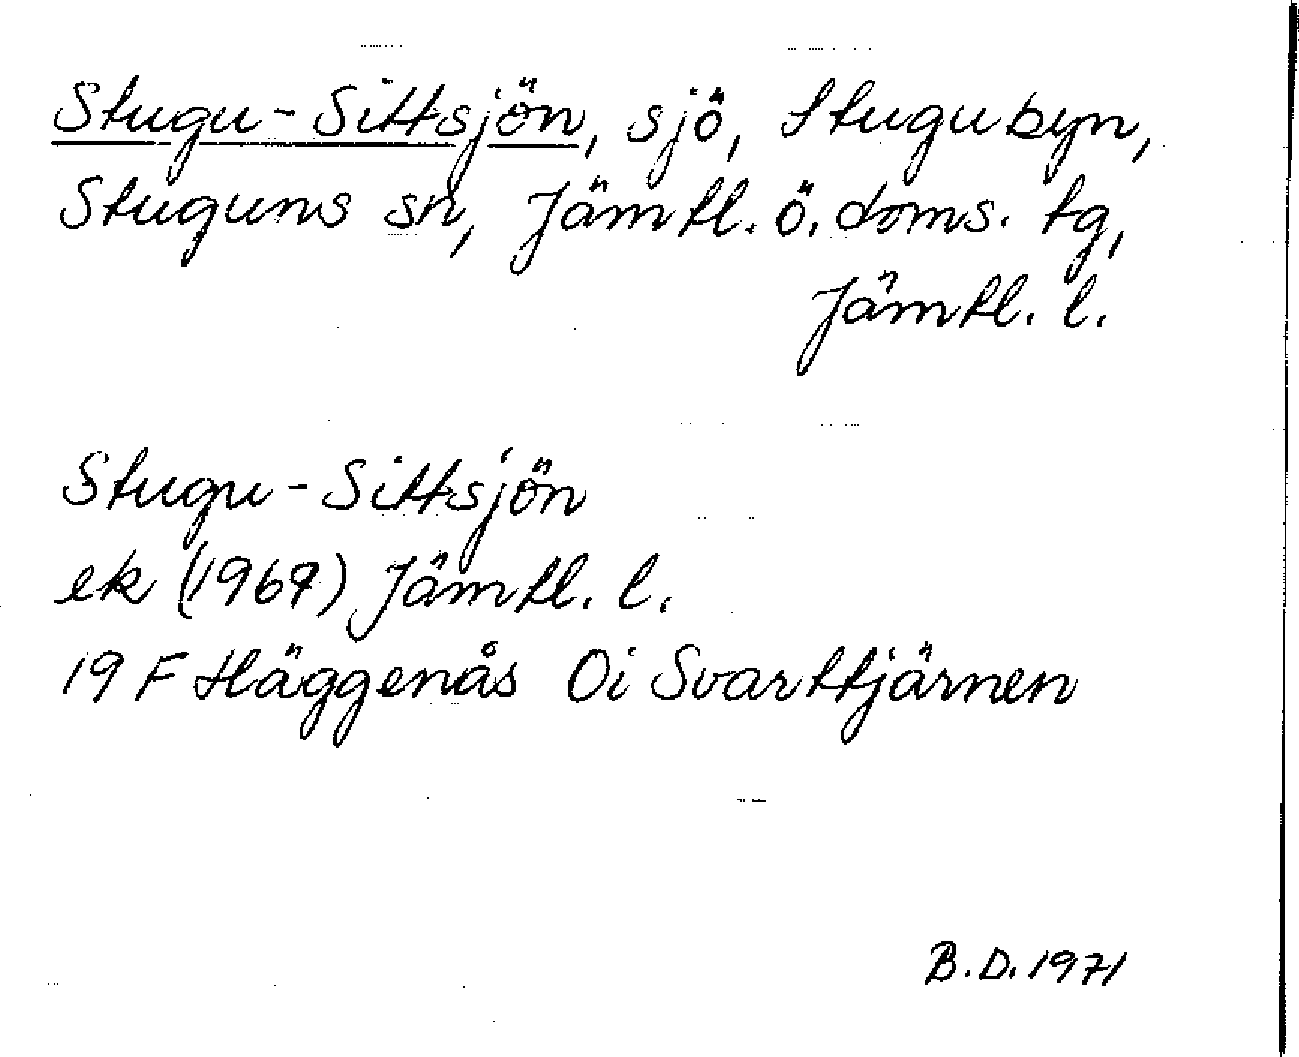 Stugu-Sittsjön, sjö, Stugubyn,
Stuguns sn, Jämtl. ö. doms. tg,
Jämtl. l.
Stugu-Sittsjön
ek (1967) Jämtl. l.
19 F Häggenås Oi Svarttjärnen
B.D. 1971